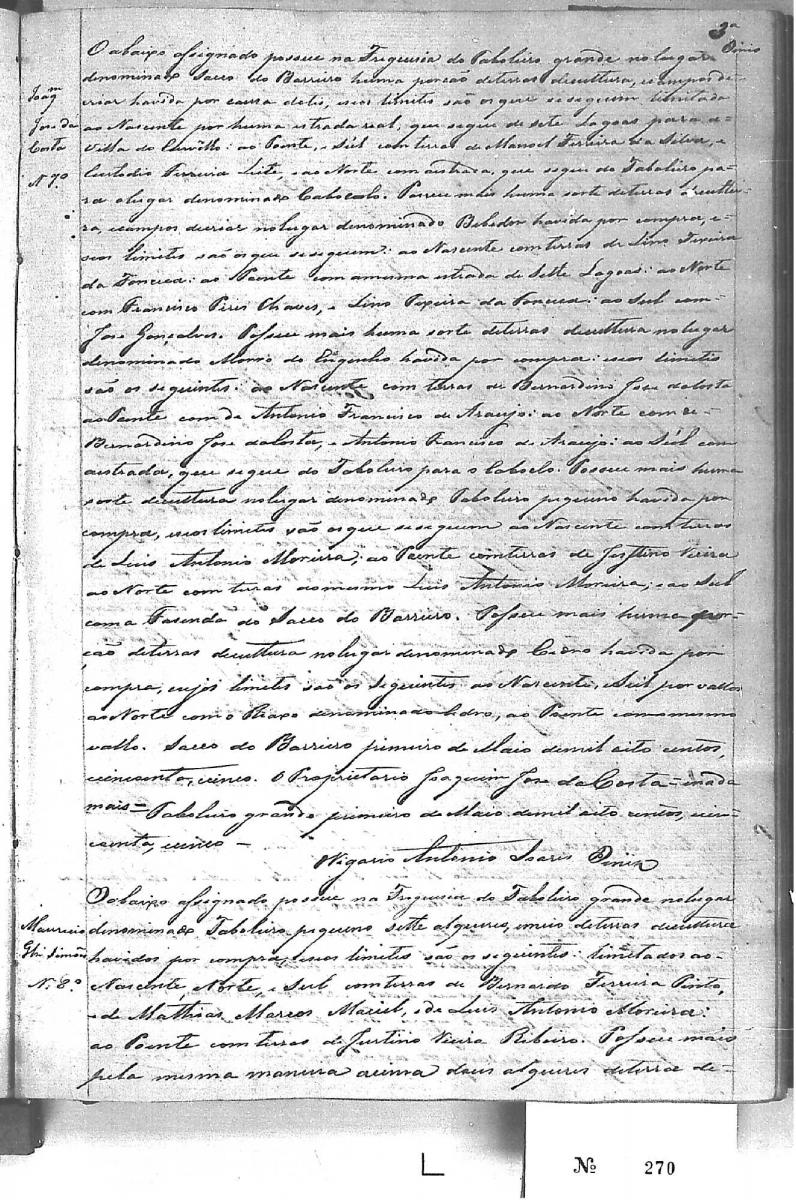 3ª
Diniz
O abaixo assignado possue na Freguesia do Taboleiro grande no lugar
denominado Sacco do Barreiro huma porção de terras de cultura, e campos de
criar havida por causa dotis, e seos limites são os que se seguem limitada
ao Nascente por huma estrada real, que segue de Sete Lagoas para a
Villa do Curvêllo: ao Poente, e Sul com terras de Manoel Ferreira da Silva, e
Custodio Ferreira Leite, e ao Norte com a istrada, que segue do Taboleiro pa-
ra o lugar denominado Caboculo. Possue mais huma sorte de terras de cultu-
ra, e campos de criar no lugar denominado Bebedor havida por compra, e
seos limites são os que se seguem: ao Nascente com terras de Lino Teixeira
da Fonceca: ao Poente com a mesma istrada de Sette Lagoas: ao Norte
com Francisco Pires Chaves, e Lino Teixeira da Fonceca: ao Sul com
José Gonsalves. Possue mais huma sorte de terras de cultura no lugar
denominado Morro do Engenho havida por compra: e seos limites
são os seguintes: ao Nascente com terras de Bernardino Jose da Costa
ao Poente com de Antonio Francisco de Araujo: ao Norte com de
Bernardino Jose da Costa, e Antonio Francisco de Araujo: ao Sul com
a istrada, que segue do Taboleiro para o Caboclo. Possue mais huma
sorte de cultura no lugar denominado Taboleiro piqueno havida por
compra, e seos limites são os que se seguem ao Nascente com terras
de Luis Antonio Moreira; ao Poente com terras de Justino Vieira
ao Norte com terras do mesmo Luis Antonio Moreira; e ao Sul
com a Fazenda do Sacco do Barreiro. Possue mais huma por-
ção de terras de cultura no lugar denominado Cedro havida por
compra, cujos limites são os seguintes ao Nascente, e Sul por vallos
ao Norte com o Riaxo denominado Sedro, ao Poente com o mesmo
vallo. Sacco do Barreiro primeiro de Maio de mil oito centos,
cincoenta, e cinco. O Proprietario Joaquim Jose da Costa = e nada
mais = Taboleiro grande primeiro de Maio de mil oito centos, cin-
coenta, e cinco =
Vigario Antonio Soares Diniz
O abaixo assignado possue na Freguesia do Taboleiro grande no lugar
denominado Taboleiro piqueno sette alqueires, e meio de terras de cultura
havidos por compra, e seos limites são os seguintes: limitados ao
Nascente, Norte, e Sul com terras de Bernardo Ferreira Pinto,
e de Mathias Marcos Maciel, e de Luis Antonio Moreira:
ao Poente com terras de Justino Vieira Ribeiro. Possue mais
pela mesma maneira acima dous alqueires de terra de
Joaqm
Jose da
Costa
Nº 7º
Mauricio
Simões
N. 8º
L
Nº 270